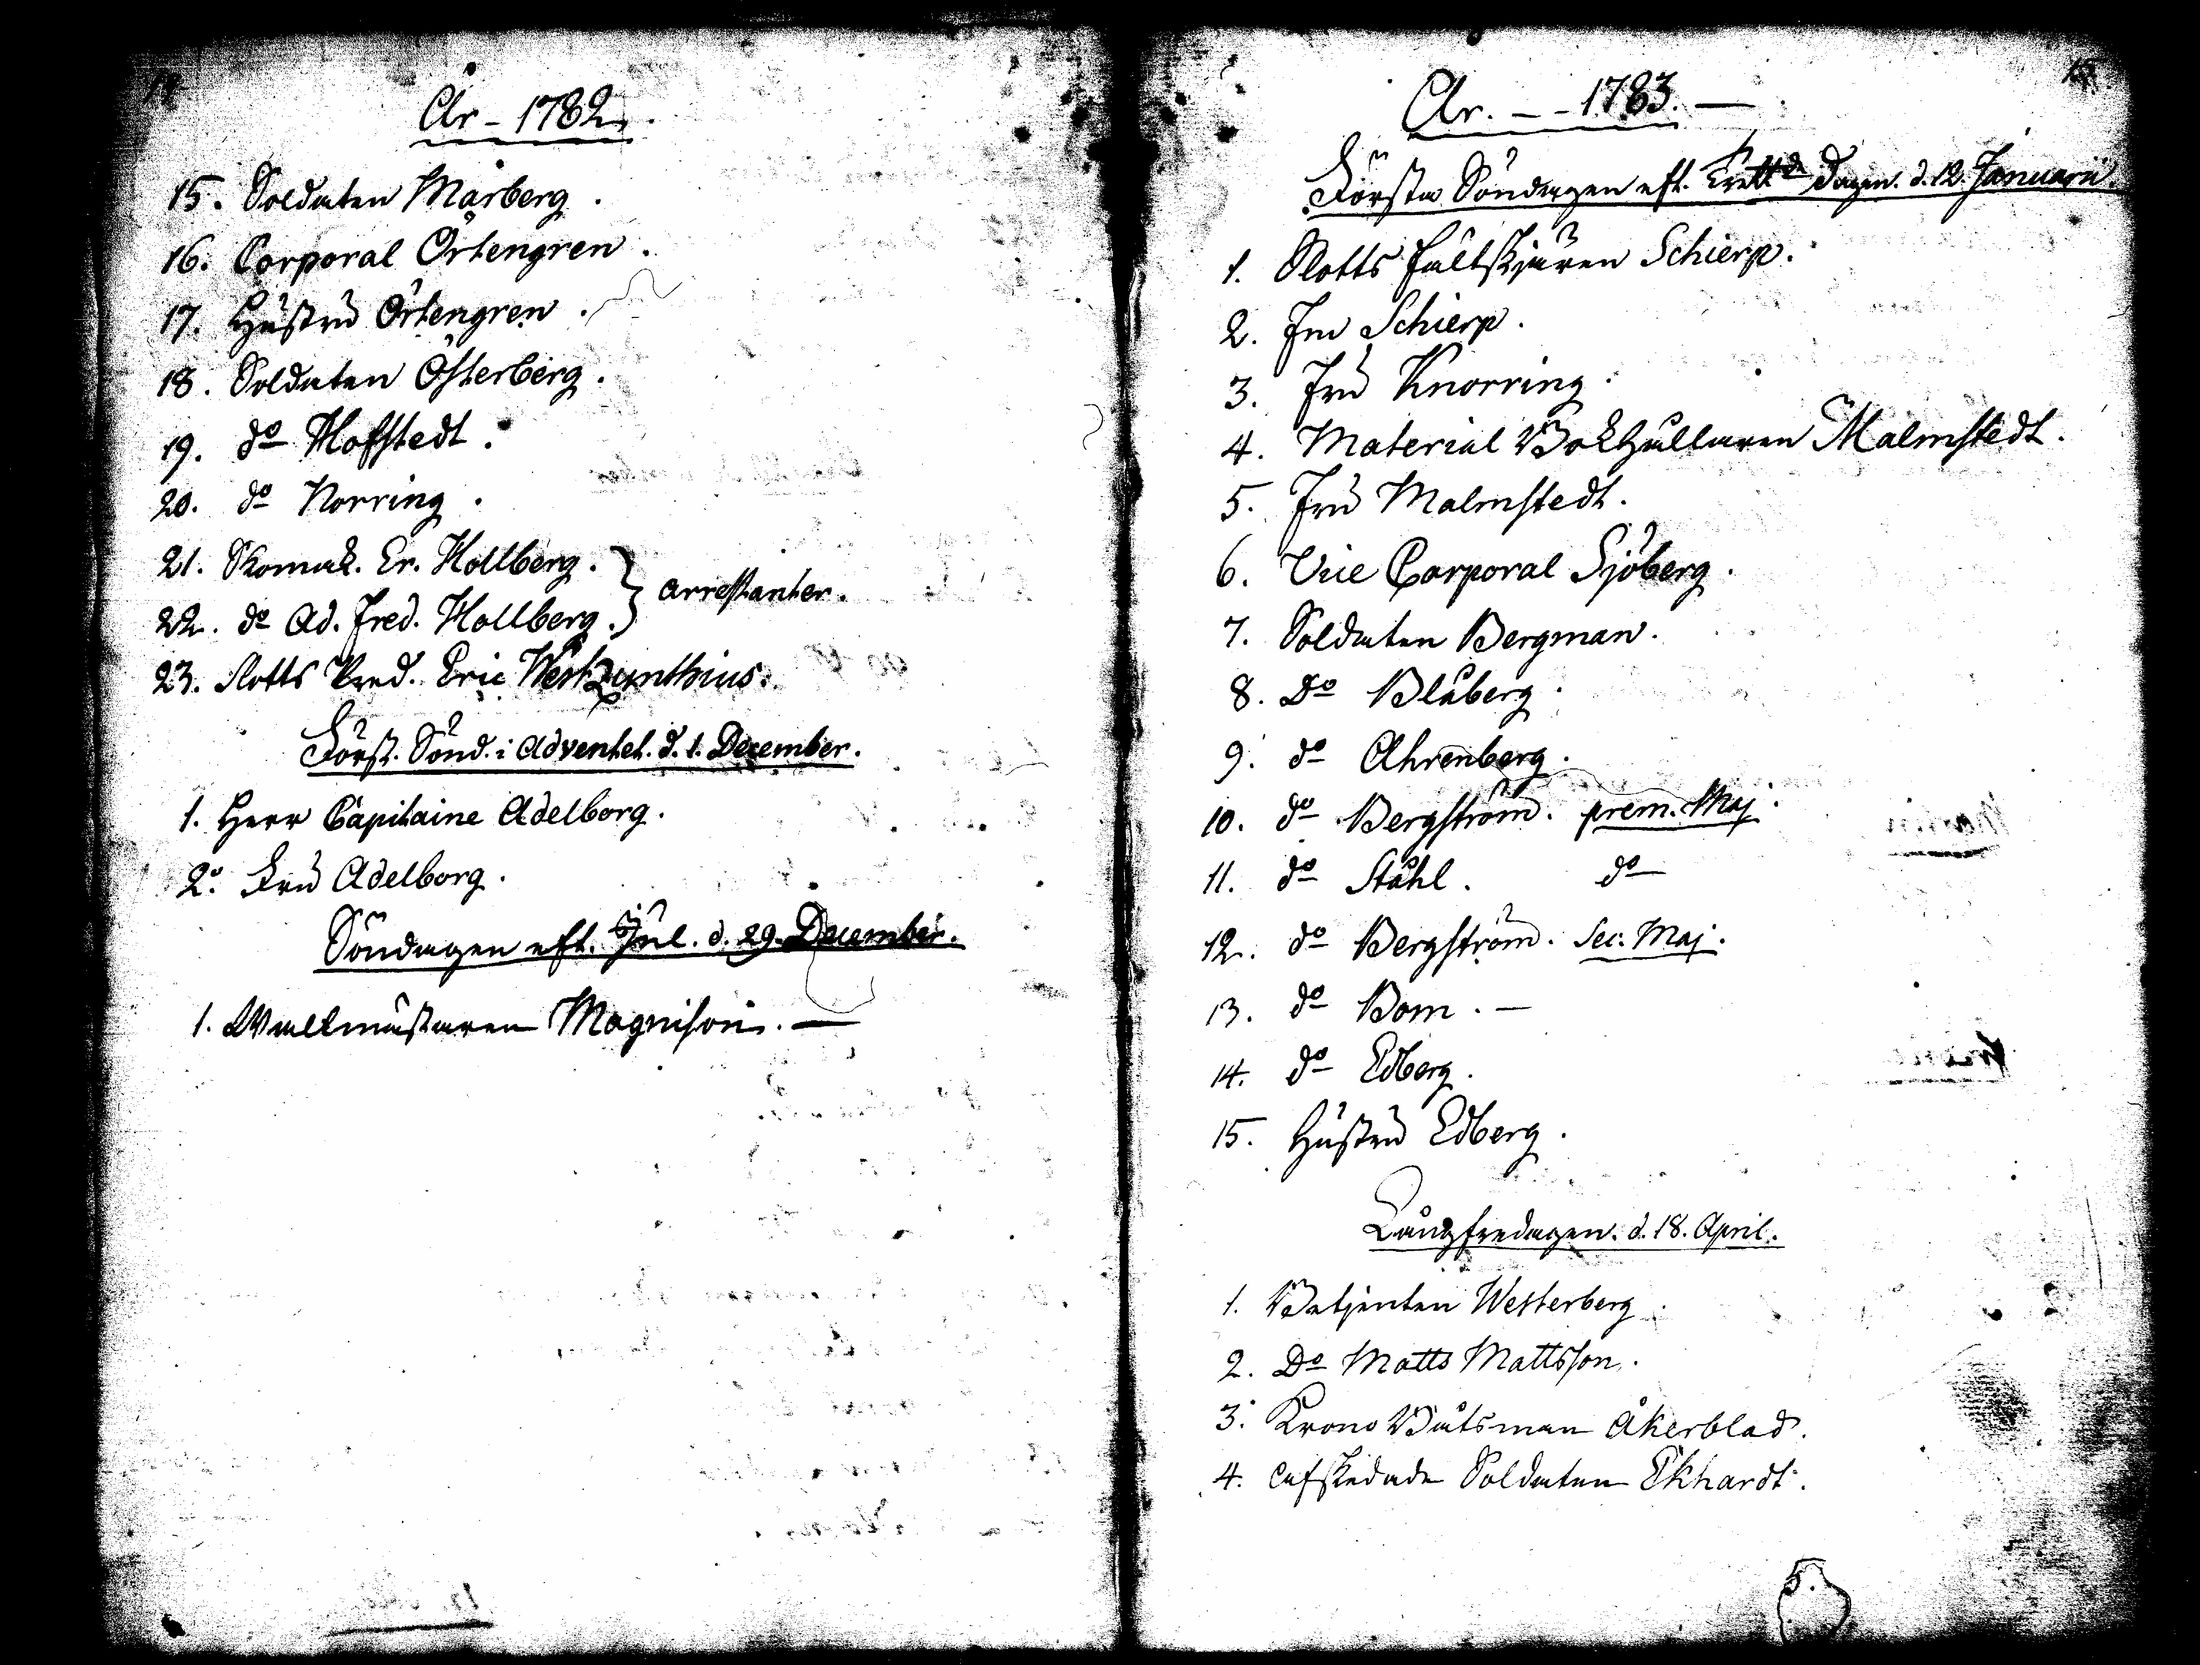 År - 1782.
15. Soldaten Mårberg.
16. Corporal Örtengren.
17. Hustru Örtengren.
18. Soldaten Österberg.
19. do Hofstedt.
20. do Norring.
21. Skomak. Er. Hollberg.
arrestanter.
22. do Ad. Fred. Hollberg.
23. Slotts Pred. Eric Westzynthius.
Först. Sönd. i Adventet. d. 1. December.
1. Herr Capitaine Adelborg.
2. Fru Adelborg.
Söndagen eft. Jul. d. 29. December.
1. Wallmästaren Magnison.
15
År. - - 1783. -
Första Söndagen eft. Trett. Dagen. d. 12. Januarii.
1. Slotts Fältskjären Schierp.
2. Fru Schierp.
3. Fru Knorring.
4. Material Bokhållaren Malmstedt.
5. Fru Malmstedt.
6. Vice Corporal Sjöberg.
7. Soldaten Bergman.
8. Do Blåberg.
9. do Ahrenberg.
10. do Bergström. prem. Maj.
11. do Ståhl. do
12. do Bergström. Sec: Maj.
13. do Bom. -
14. do Edberg.
15. Hustru Edberg.
Långfredagen. d. 18. April.
1. Betjenten Westerberg.
2. Do Matts Mattsson.
3. Krono Båtsman Åkerblad.
4. Afskedade Soldaten Ekhardt.
5.